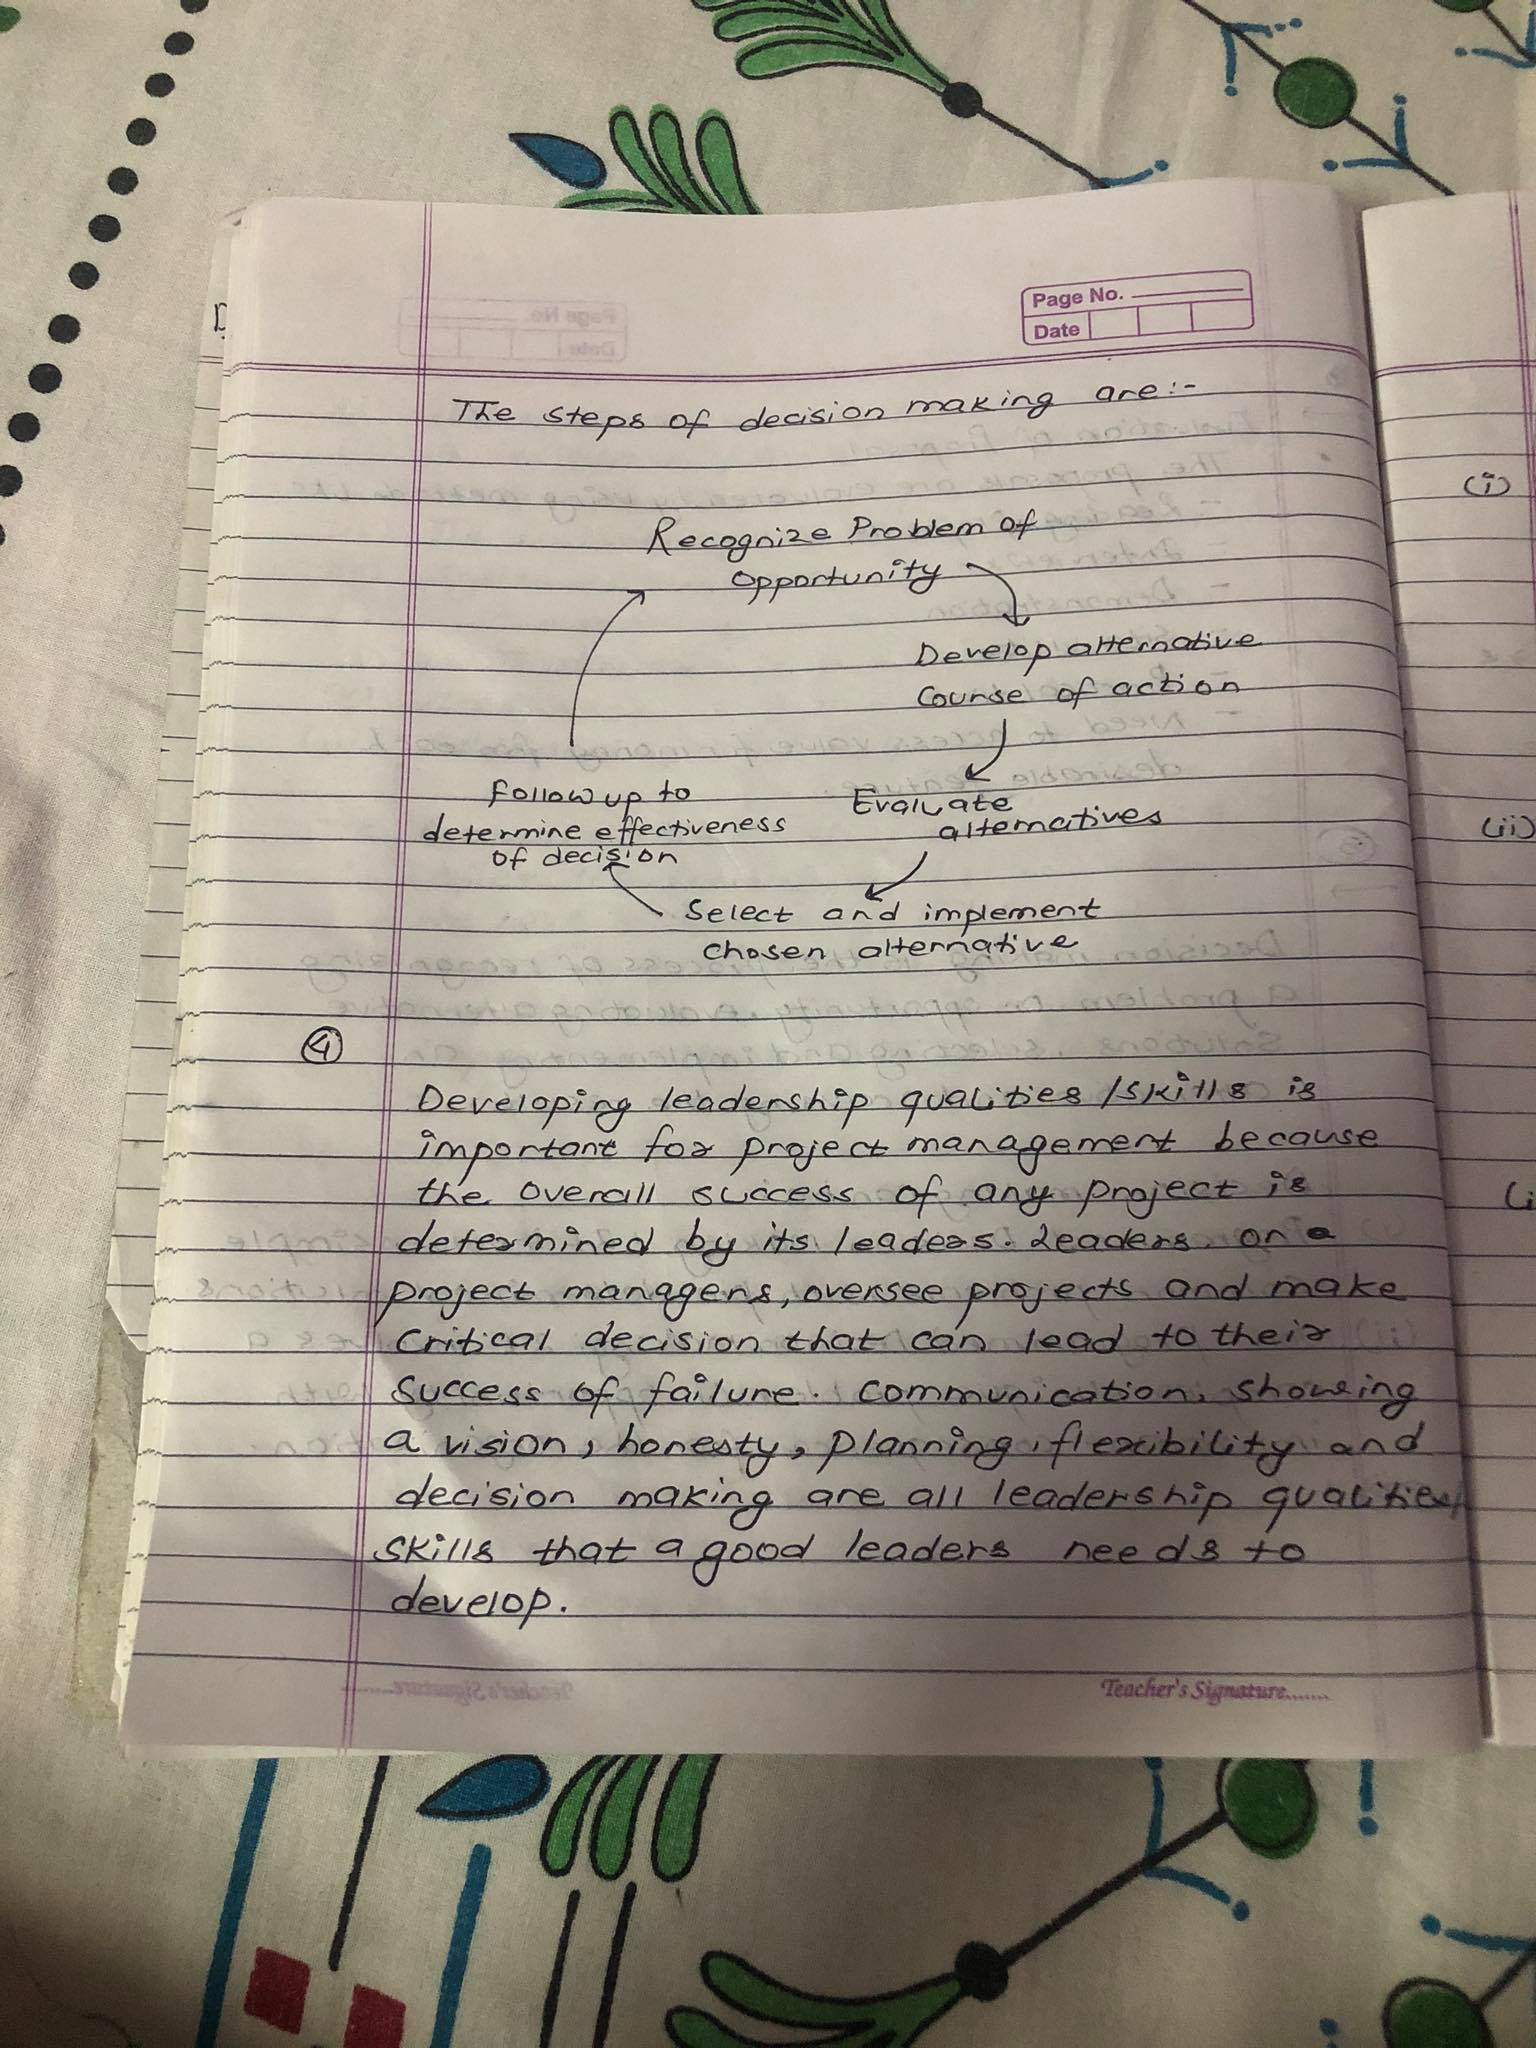 Page No.
Date
The steps of decision making are:-
Recognize Problem of
opportunity
Develop alternative
Course of action
Follow up to
determine effectiveness
of decision
Evaluate
alternatives
Select and implement
chosen alternative
(4)
Developing leadership qualities / skills is
important for project management because
the overall success of any project is
determined by its leaders. Leaders or a
project managers, oversee projects and make
Critical decision that can lead to their
success of failure. Communication, showing
a vision, honesty, planning, flexibility and
decision making are all leadership qualities/
skills that a good leaders needs to
develop.
Teacher's Signature.......
(i)
(ii)